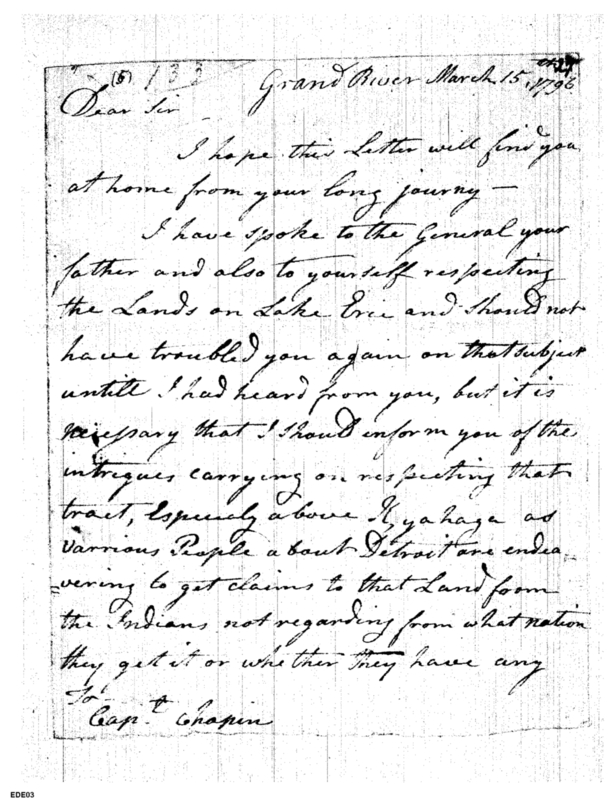 (5) 133
Grand River March 15, 1796
Dear Sir
I hope this Letter will find you
at home from your long journey —
I have spoke to the General your
father and also to yourself respecting
the Lands on Lake Erie and should not
have troubled you again on that subject
untill I had heard from you, but it is
necessary that I should inform you of the
intrigues carrying on respecting that
tract, Especialy above yahaga as
varrious People about Detroit are endea
=vering to get claims to that Land from
the Indians not regarding from what nation
they get it or whether they have any
To
Capt. Chapin
EDE03